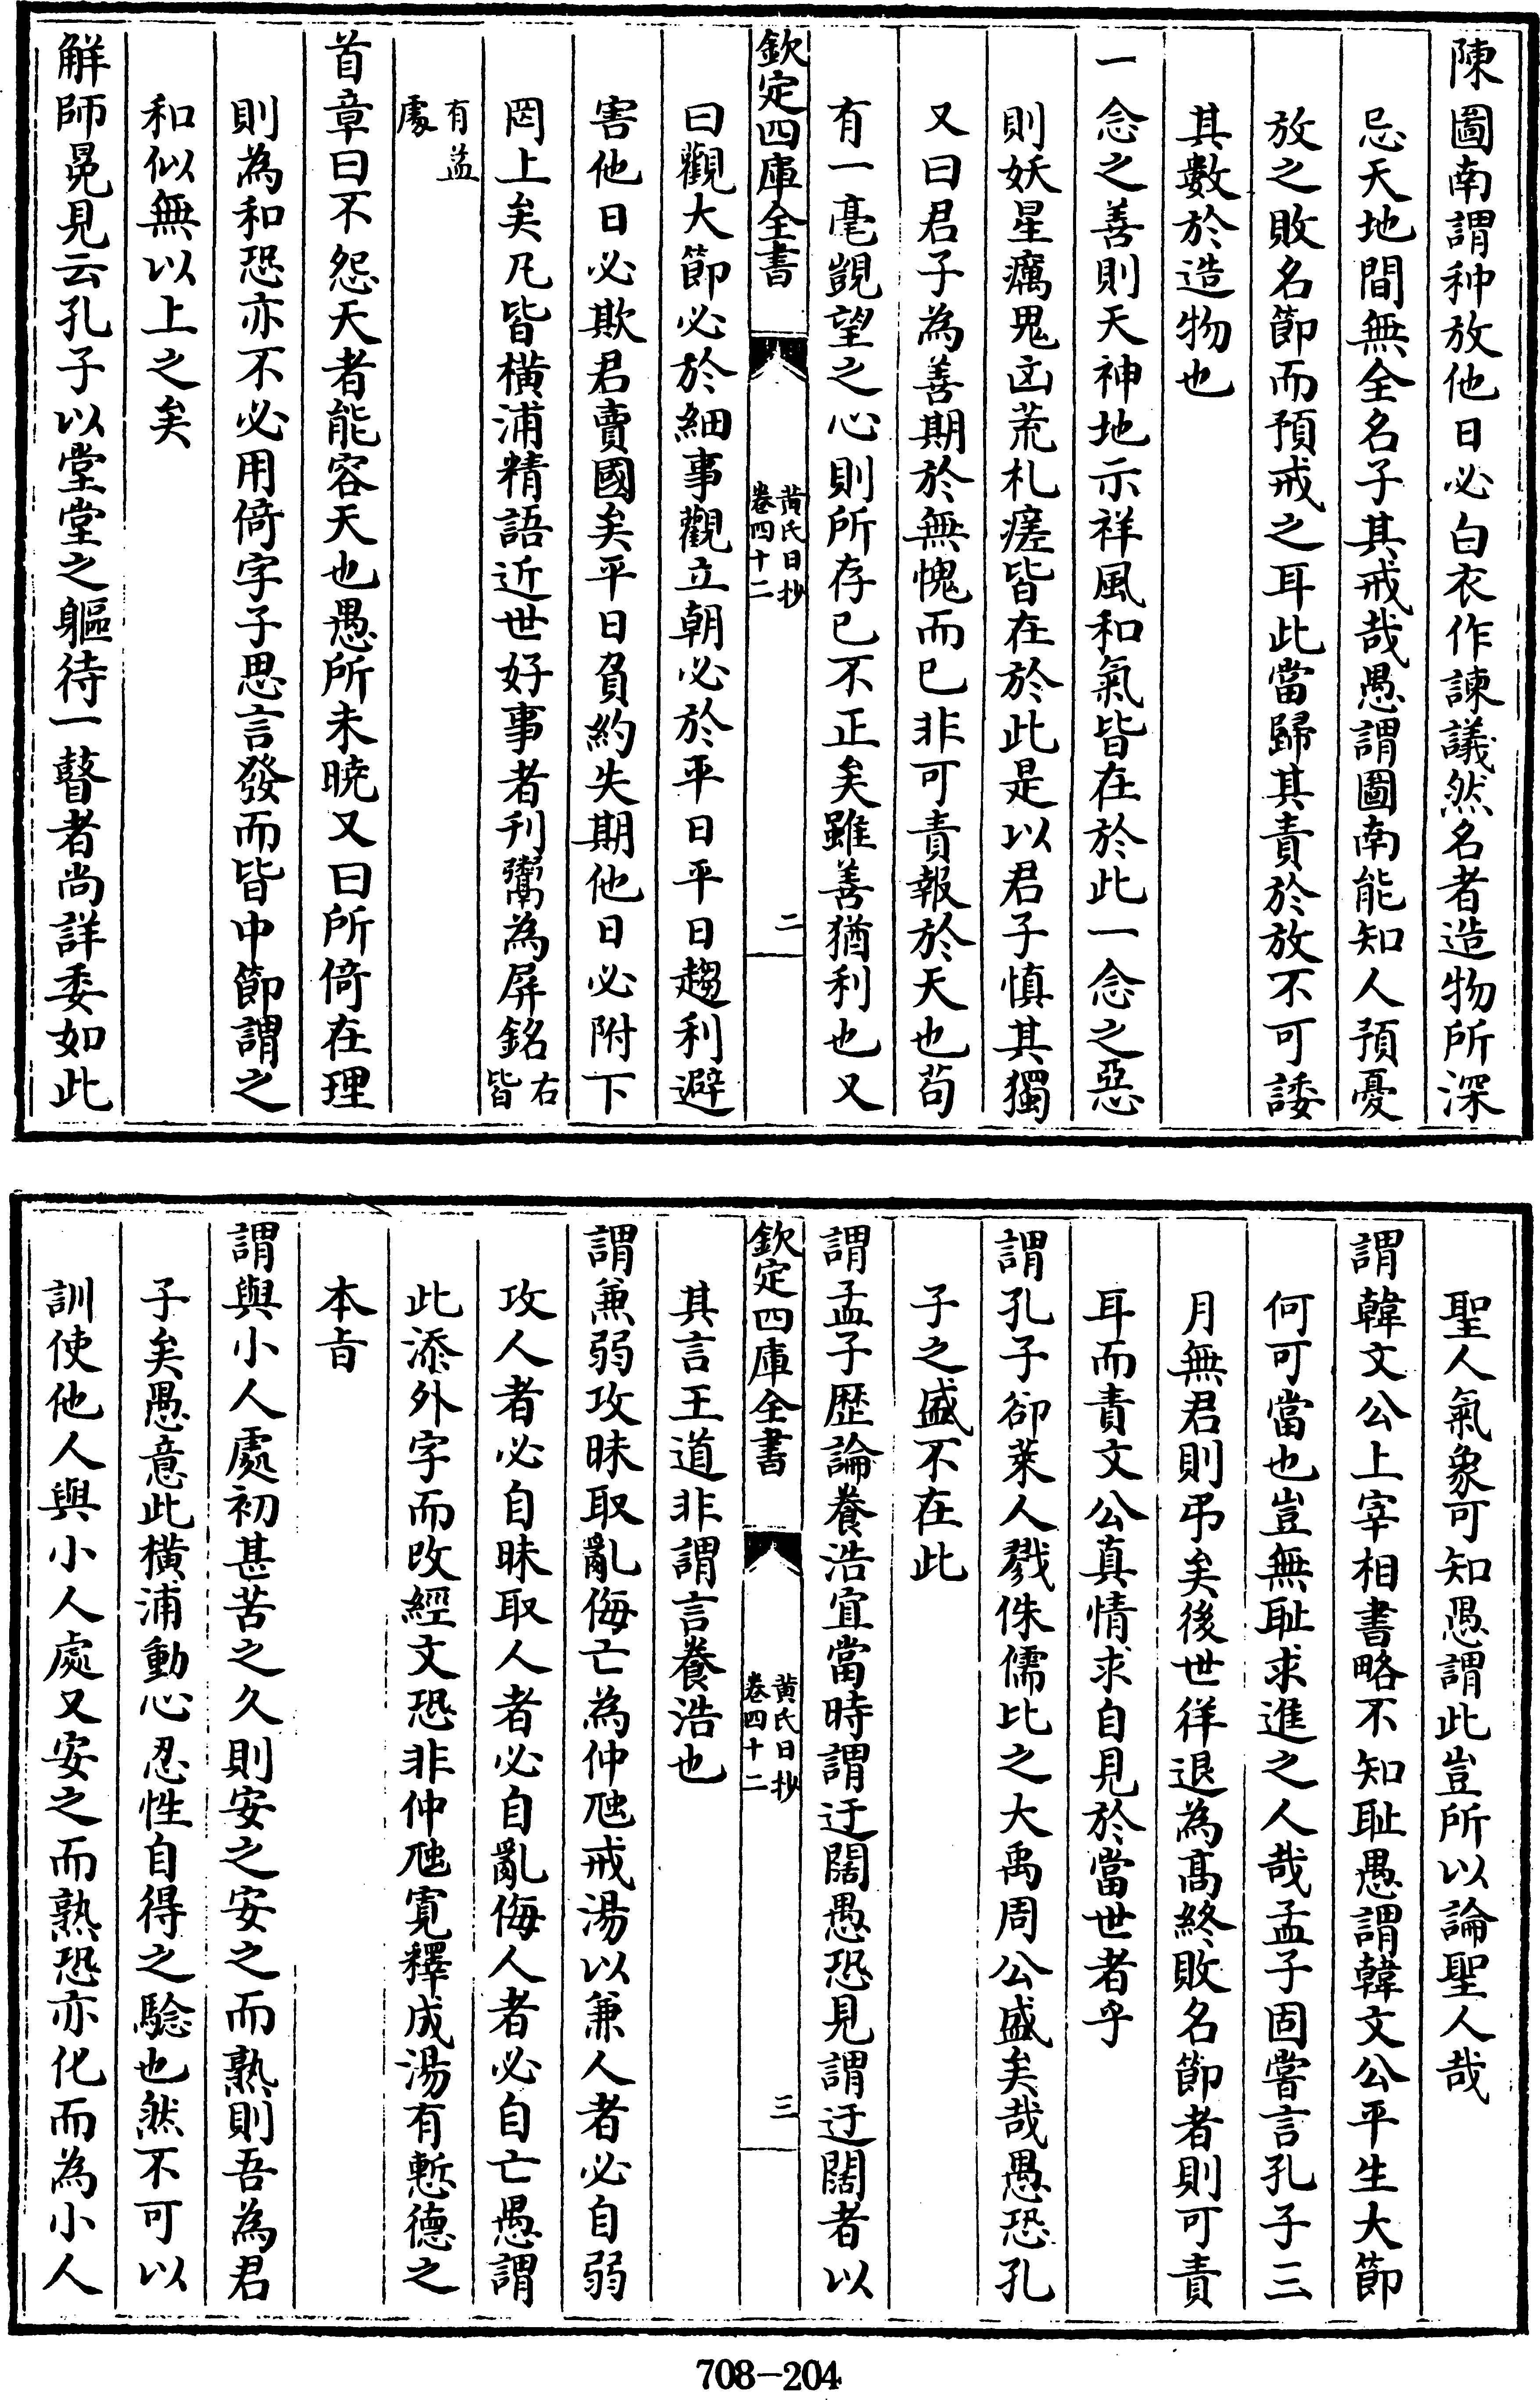 陳圖南謂种放他日必白衣作諫議然名者造物所深
忌天地間無全名子其戒哉愚謂圖南能知人預憂
放之敗名節而預戒之耳此當歸其責於放不可諉
其數於造物也
一念之善則天神地示祥風和氣皆在於此一念之惡
則妖星癘鬼凶荒札瘥皆在於此是以君子慎其獨
又曰君子為善期於無愧而已非可責報於天也苟
有一毫覬望之心則所存已不正矣雖善猶利也又
欽定四庫全書
黄氏日抄
卷四十二
二
曰觀大節必於細事觀立朝必於平日平日趨利避
害他日必欺君賣國矣平日負約失期他日必附下
罔上矣凡皆橫浦精語近世好事者刋鬻為屏銘右皆
有益處
首章曰不怨天者能容天也愚所未曉又曰所倚在理
則為和恐亦不必用倚字子思言發而皆中節謂之
和似無以上之矣
解師冕見云孔子以堂堂之軀待一瞽者尚詳委如此
聖人氣象可知愚謂此豈所以論聖人哉
謂韓文公上宰相書略不知耻愚謂韓文公平生大節
何可當也豈無耻求進之人哉孟子固嘗言孔子三
月無君則弔矣後世徉退為髙終敗名節者則可責
耳而責文公真情求自見於當世者乎
謂孔子卻萊人戮侏儒比之大禹周公盛矣哉愚恐孔
子之盛不在此
謂孟子歴論養浩宜當時謂迂闊愚恐見謂迂闊者以
欽定四庫全書
黄氏日抄
卷四十二
三
其言王道非謂言養浩也
謂兼弱攻昧取亂侮亡為仲虺戒湯以兼人者必自弱
攻人者必自昧取人者必自亂侮人者必自亡愚謂
此添外字而改經文恐非仲虺寛釋成湯有慙德之
本㫖
謂與小人處初甚苦之久則安之安之而熟則吾為君
子矣愚意此橫浦動心忍性自得之驗也然不可以
訓使他人與小人處又安之而熟恐亦化而為小人
708-204